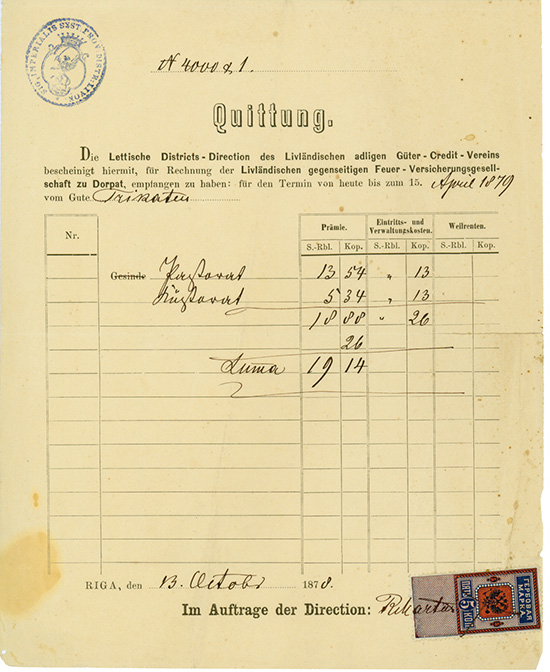 SIG. IMPERIALIS SYST. PROV. DISTR. LIVON
N 4000 & 1.
Quittung.
Die Lettische Districts-Direction des Livländischen adligen Güter-Credit-Vereins
bescheinigt hiermit, für Rechnung der Livländischen gegenseitigen Feuer-Versicherungsgesell-
schaft zu Dorpat, empfangen zu haben: für den Termin von heute bis zum 15. April 1879
vom Gute Trikaten
Nr. Prämie. Eintritts- und Verwaltungskosten. Weilrenten.
S.-Rbl. Kop. S.-Rbl. Kop. S.-Rbl. Kop.
Gesinde Pastorat 13 54 " 13
Küstorat 5 34 " 13
18 88 " 26
26
Suma 19 14
RIGA, den 13. Octobr 1878.
Im Auftrage der Direction:
ГЕРБОВАЯ
МАРКА
5
ПЯТЬ КОП.